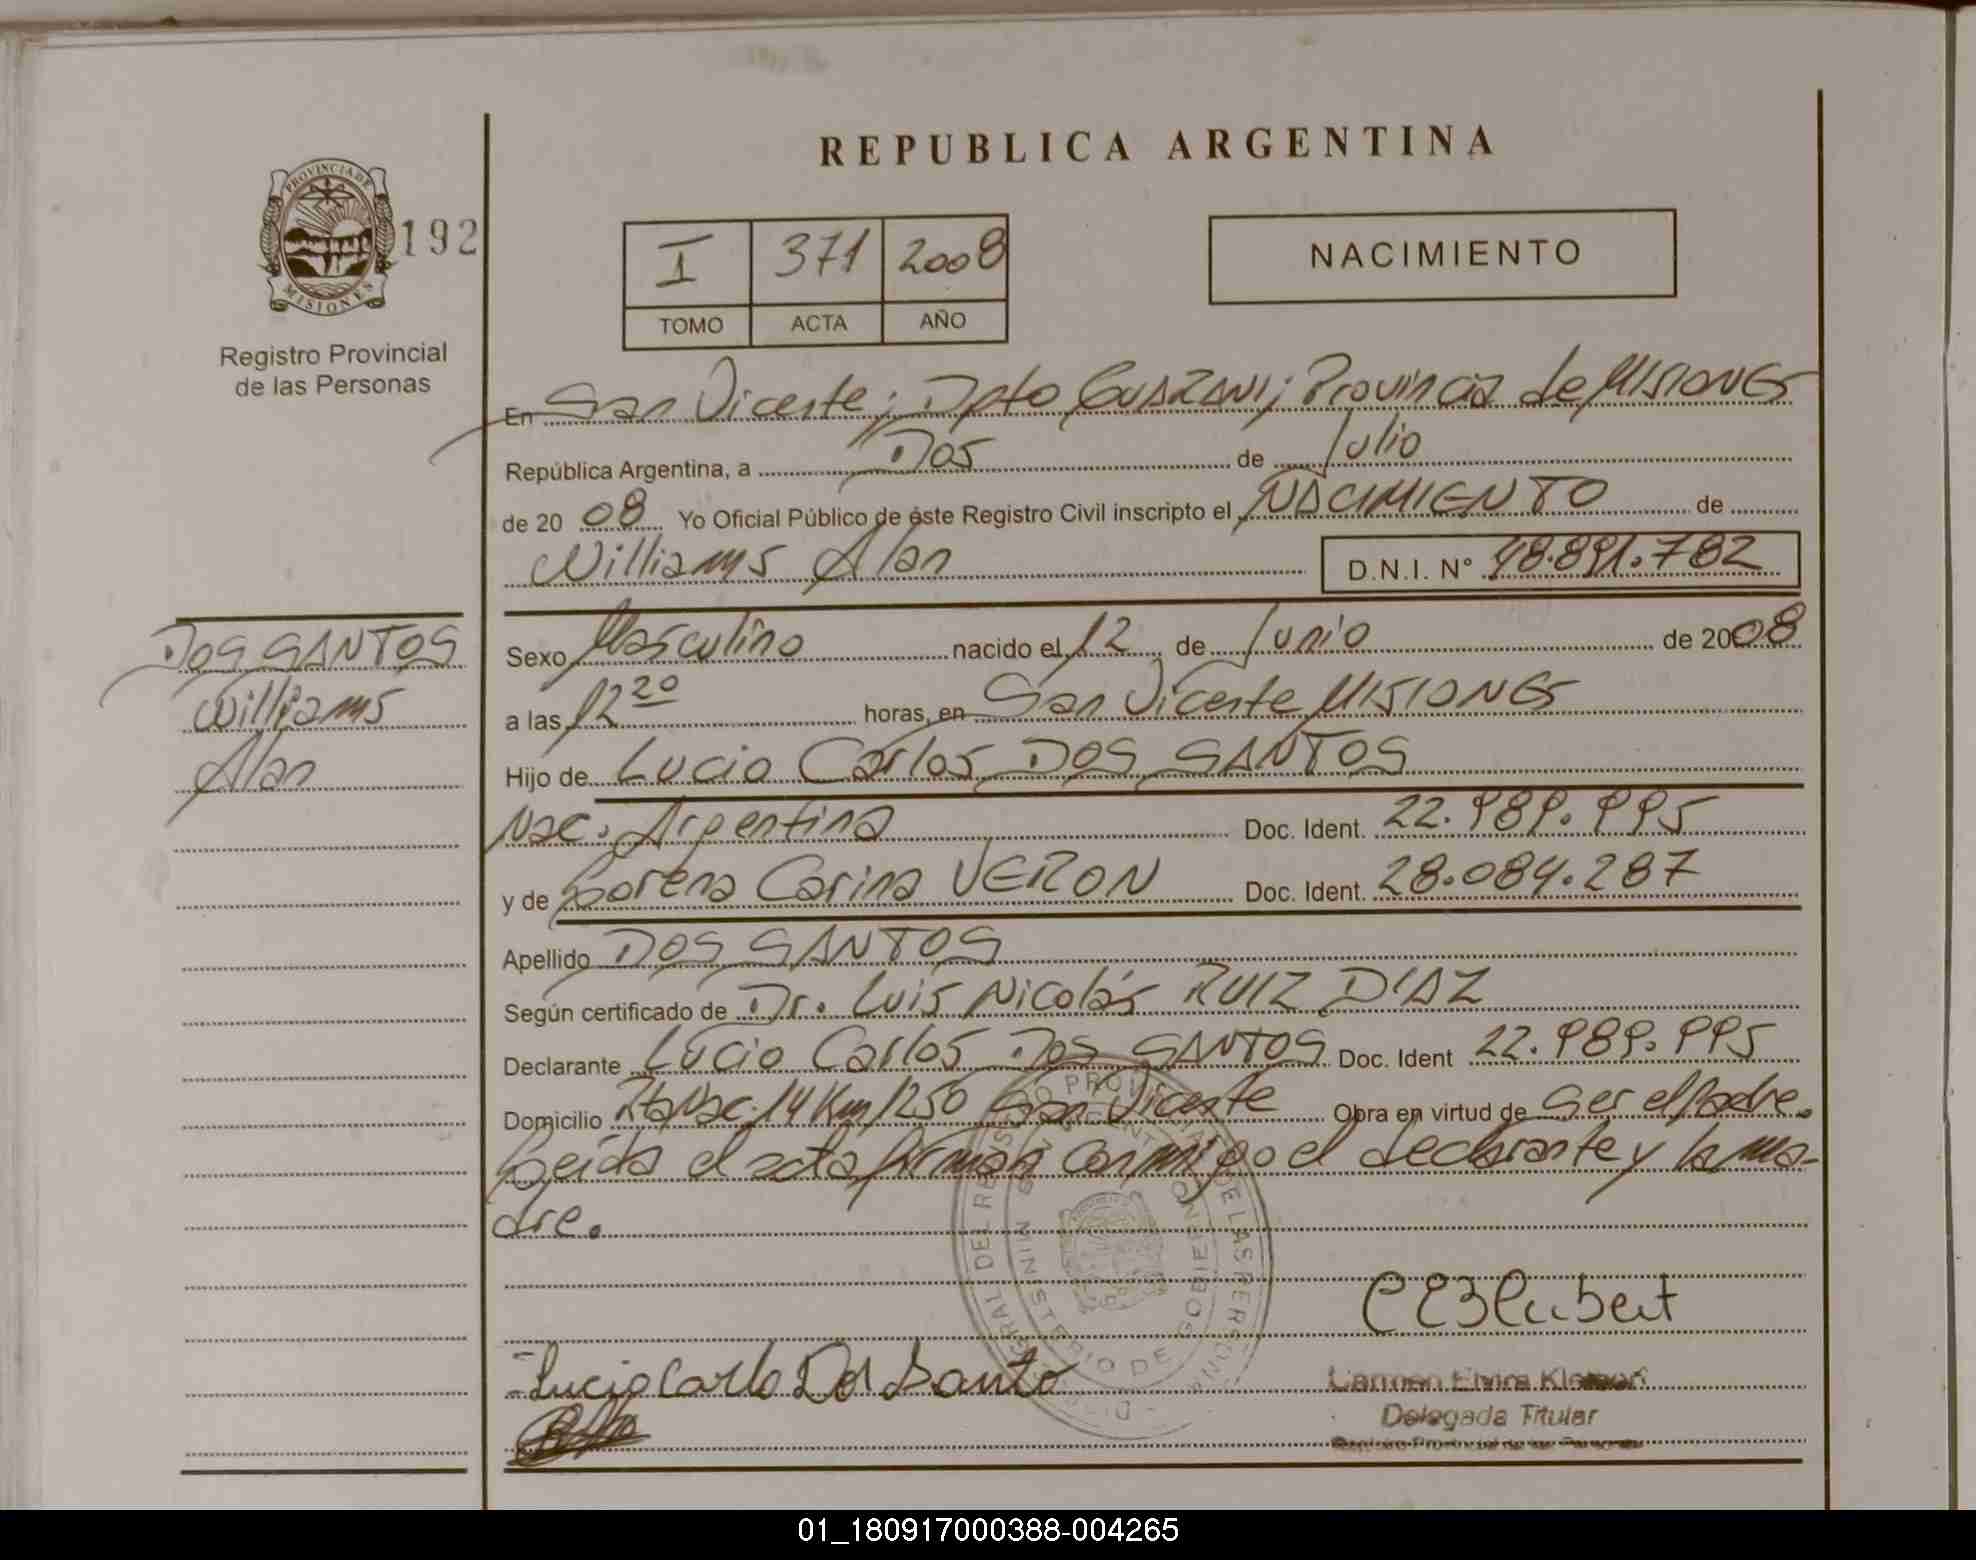 REPUBLICA ARGENTINA
PROVINCIA DE
MISIONES
192
Registro Provincial
de las Personas
I 371 2008
TOMO ACTA AÑO
NACIMIENTO
En San Vicente; Dpto GUARANI; Provincia de MISIONES
República Argentina, a Dos de Julio
de 2008 Yo Oficial Público de éste Registro Civil inscripto el NACIMIENTO de
Williams Alan D.N.I. N° 48.891.782
DOS SANTOS
Williams
Alan
Sexo Masculino nacido el 12 de Junio de 2008
a las 12 20 horas, en San Vicente MISIONES
Hijo de Lucio Carlos DOS SANTOS
Nac. Argentina Doc. Ident. 22.989.995
y de Lorena Carina VERON Doc. Ident. 28.084.287
Apellido DOS SANTOS
Según certificado de Dr. Luis Nicolás RUIZ DIAZ
Declarante Lucio Carlos DOS SANTOS Doc. Ident 22.989.995
Domicilio Rta Nac. 14 Km 1250 San Vicente Obra en virtud de ser el padre.
Leída el acta firman conmigo el declarante y la ma-
dre.
MINISTERIO DE GOBIERNO
Lucio Carlo Dos Santo
Carmen Elvira
Delegada Titular
Registro Provincial de las Personas
01_180917000388-004265